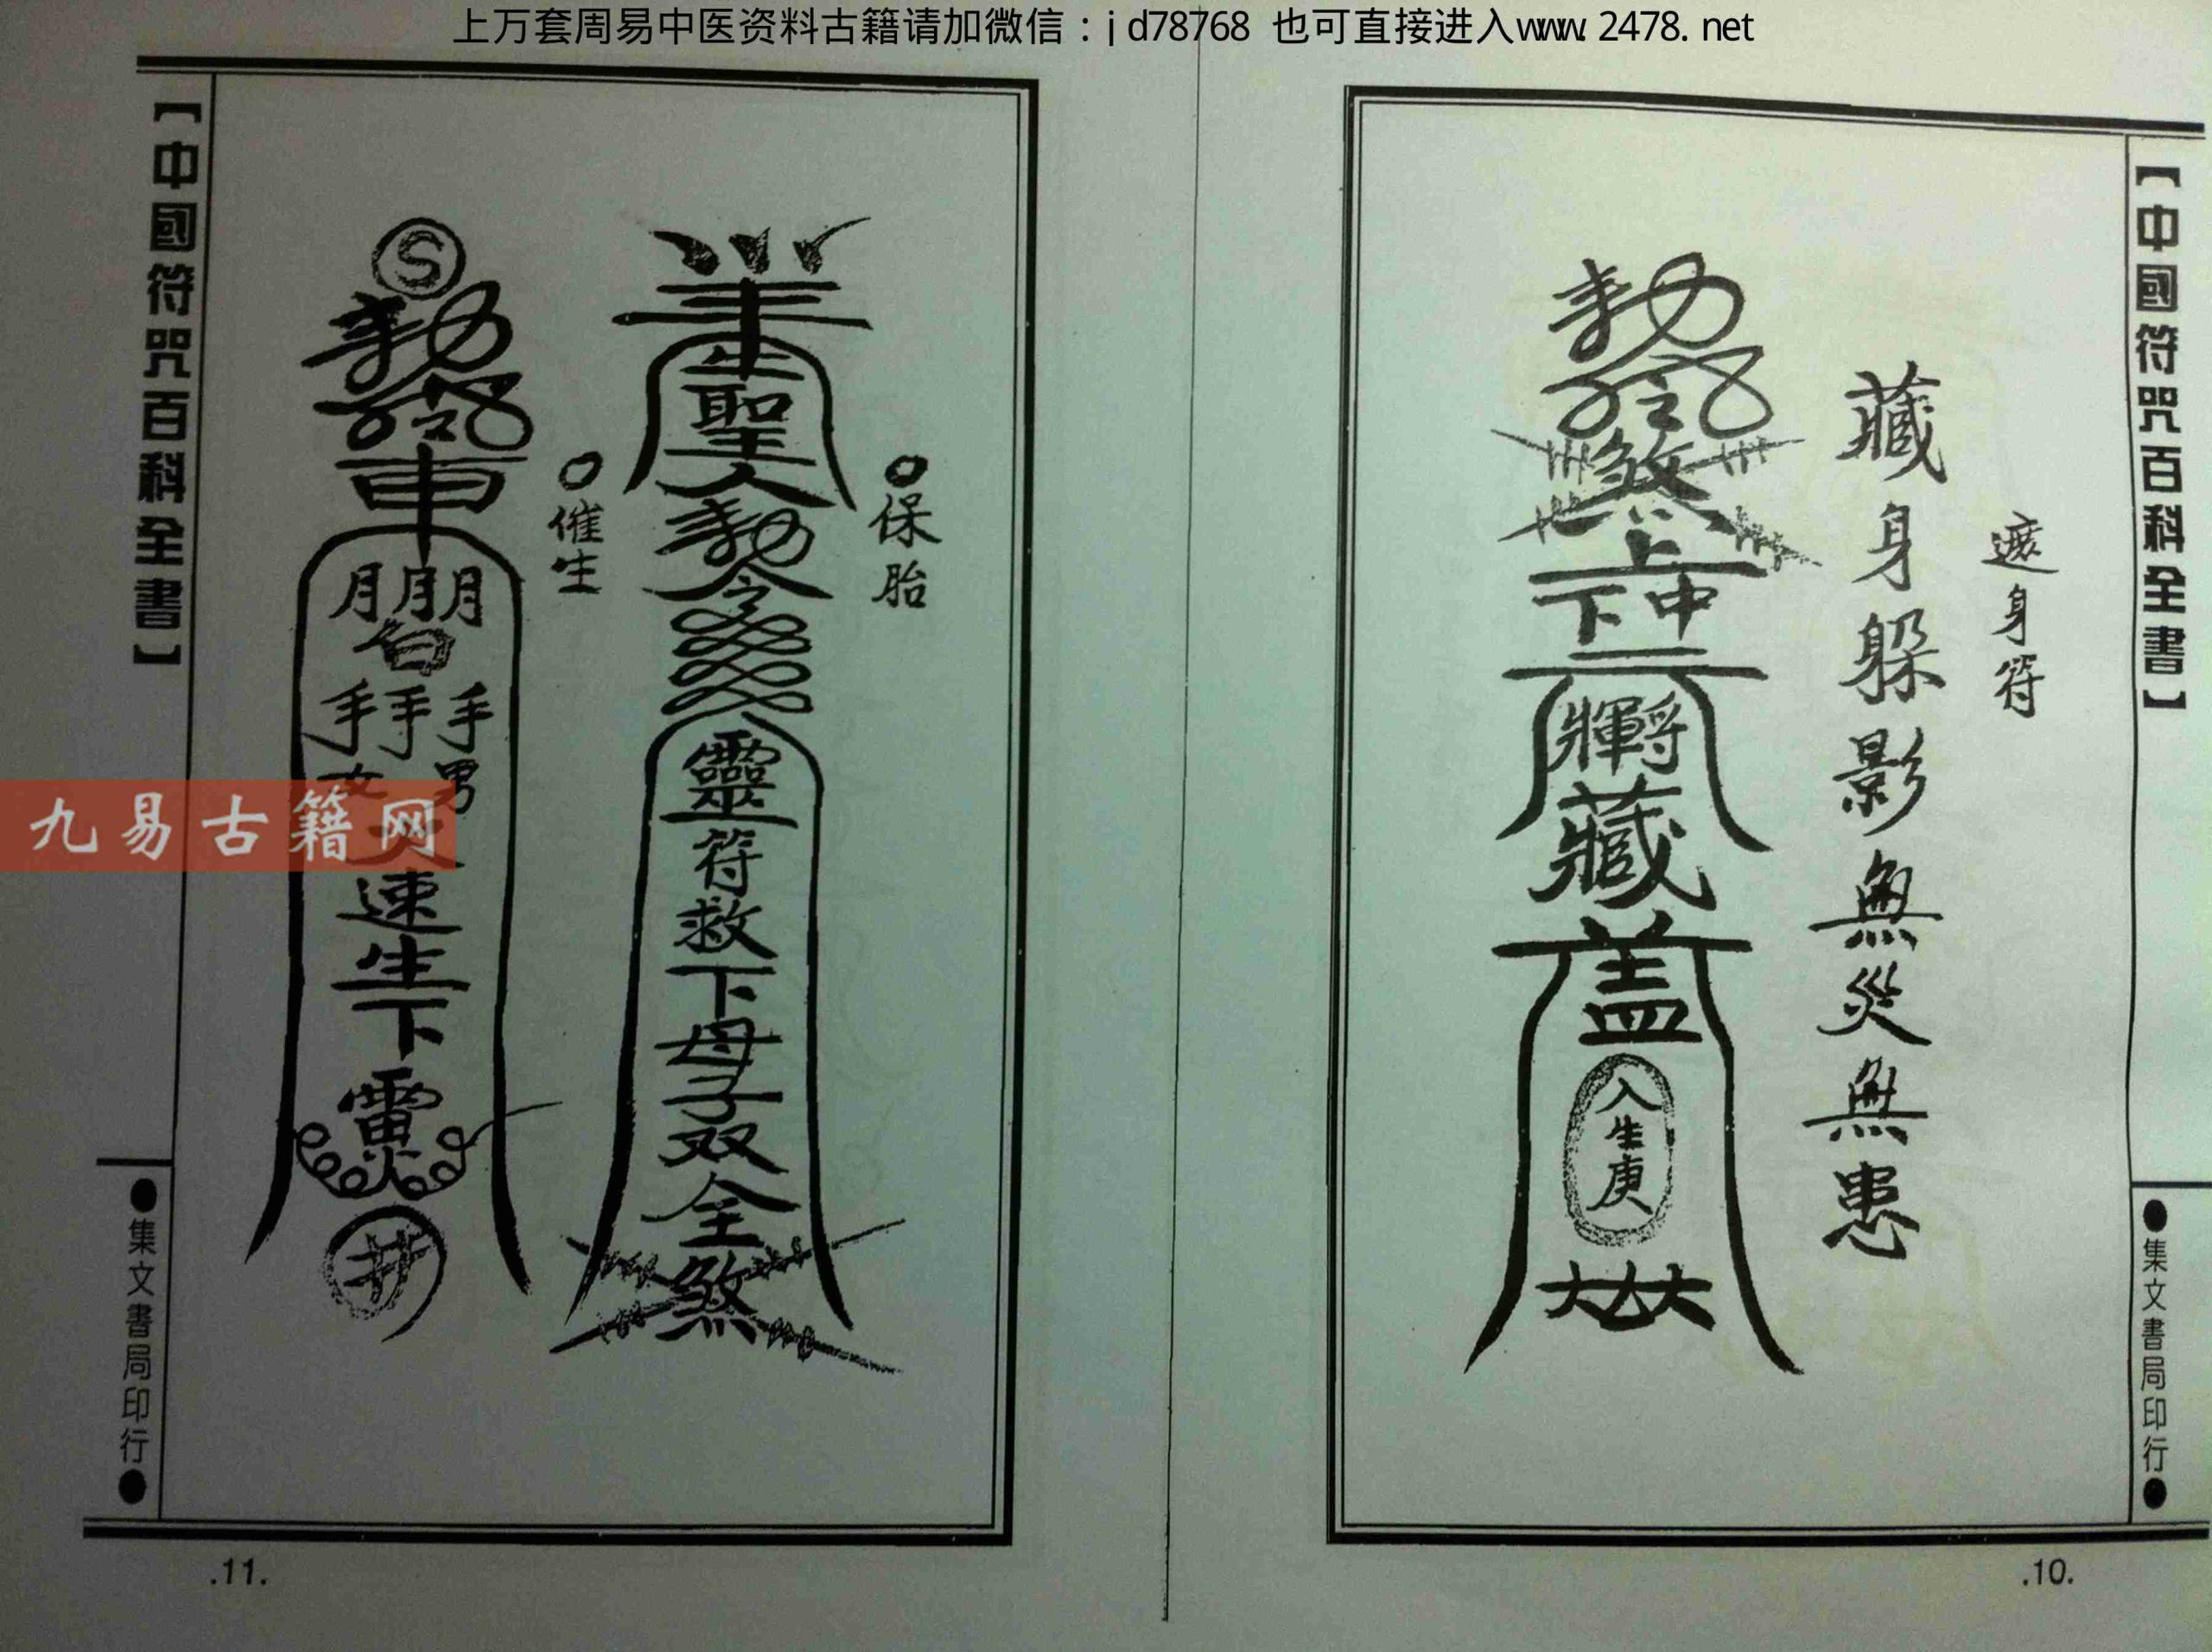 上万套周易中医资料古籍请加微信：jd78768 也可直接进入www.2478.net
【中國符咒百科全書】
●集文書局印行●
遮身符
藏身躲影無災無患
勅令
煞
上
下中
藏
盖
人生庚
.10.
○保胎
生聖人勅令
靈符救下母子双全煞
○催生
勅令
車
手手手
女男
速生下
雷火
井
【中國符咒百科全書】
●集文書局印行●
.11.
九易古籍网